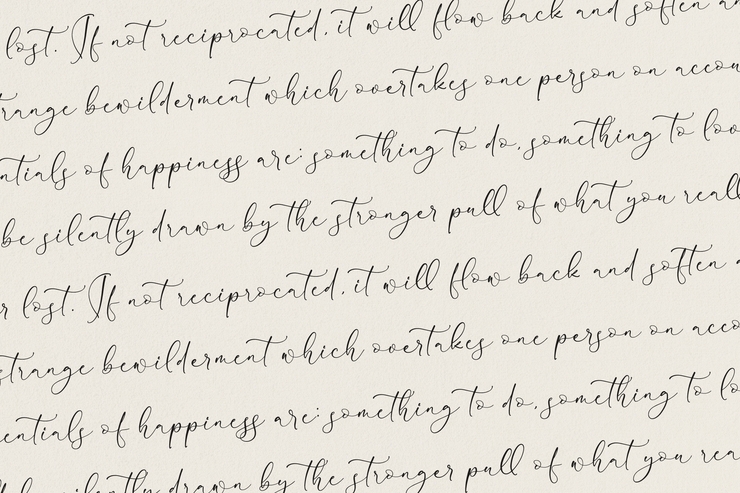 lost. If not reciprocated, it will flow back and soften
strange bewilderment which overtakes one person on
of happiness are: something to do, something to
be silently drawn by the stronger pull of what you
lost. If not reciprocated, it will flow back and soften
strange bewilderment which overtakes one person on
of happiness are: something to do, something to
silently drawn by the stronger pull of what you